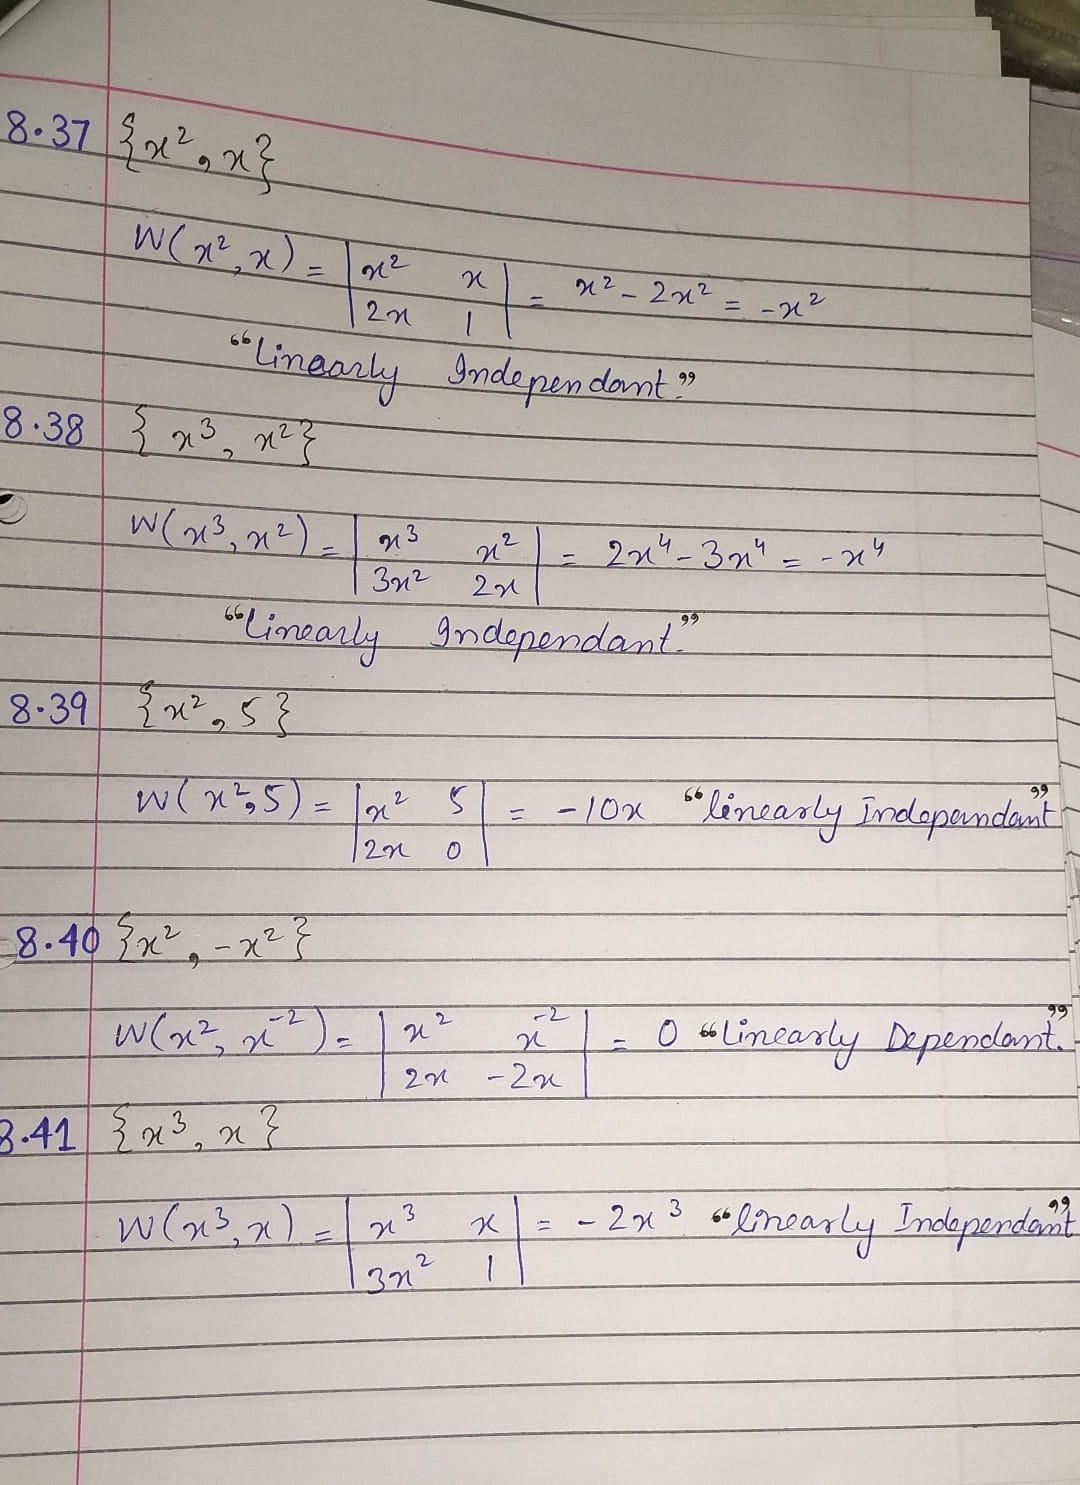 8.37 {x², x}
W(x², x) = |x² x| = x² - 2x² = -x²
|2x 1|
“Linearly Independant.”
8.38 {x³, x²}
W(x³, x²) = |x³ x²| = 2x⁴ - 3x⁴ = -x⁴
|3x² 2x|
“Linearly Independant.”
8.39 {x², 5}
W(x², 5) = |x² 5| = -10x “linearly Independant”
|2x 0|
8.40 {x², -x²}
W(x², x⁻²) = |x² x⁻²| = 0 “linearly Dependant.”
|2x -2x|
8.41 {x³, x}
W(x³, x) = |x³ x| = -2x³ “linearly Independant”
|3x² 1|